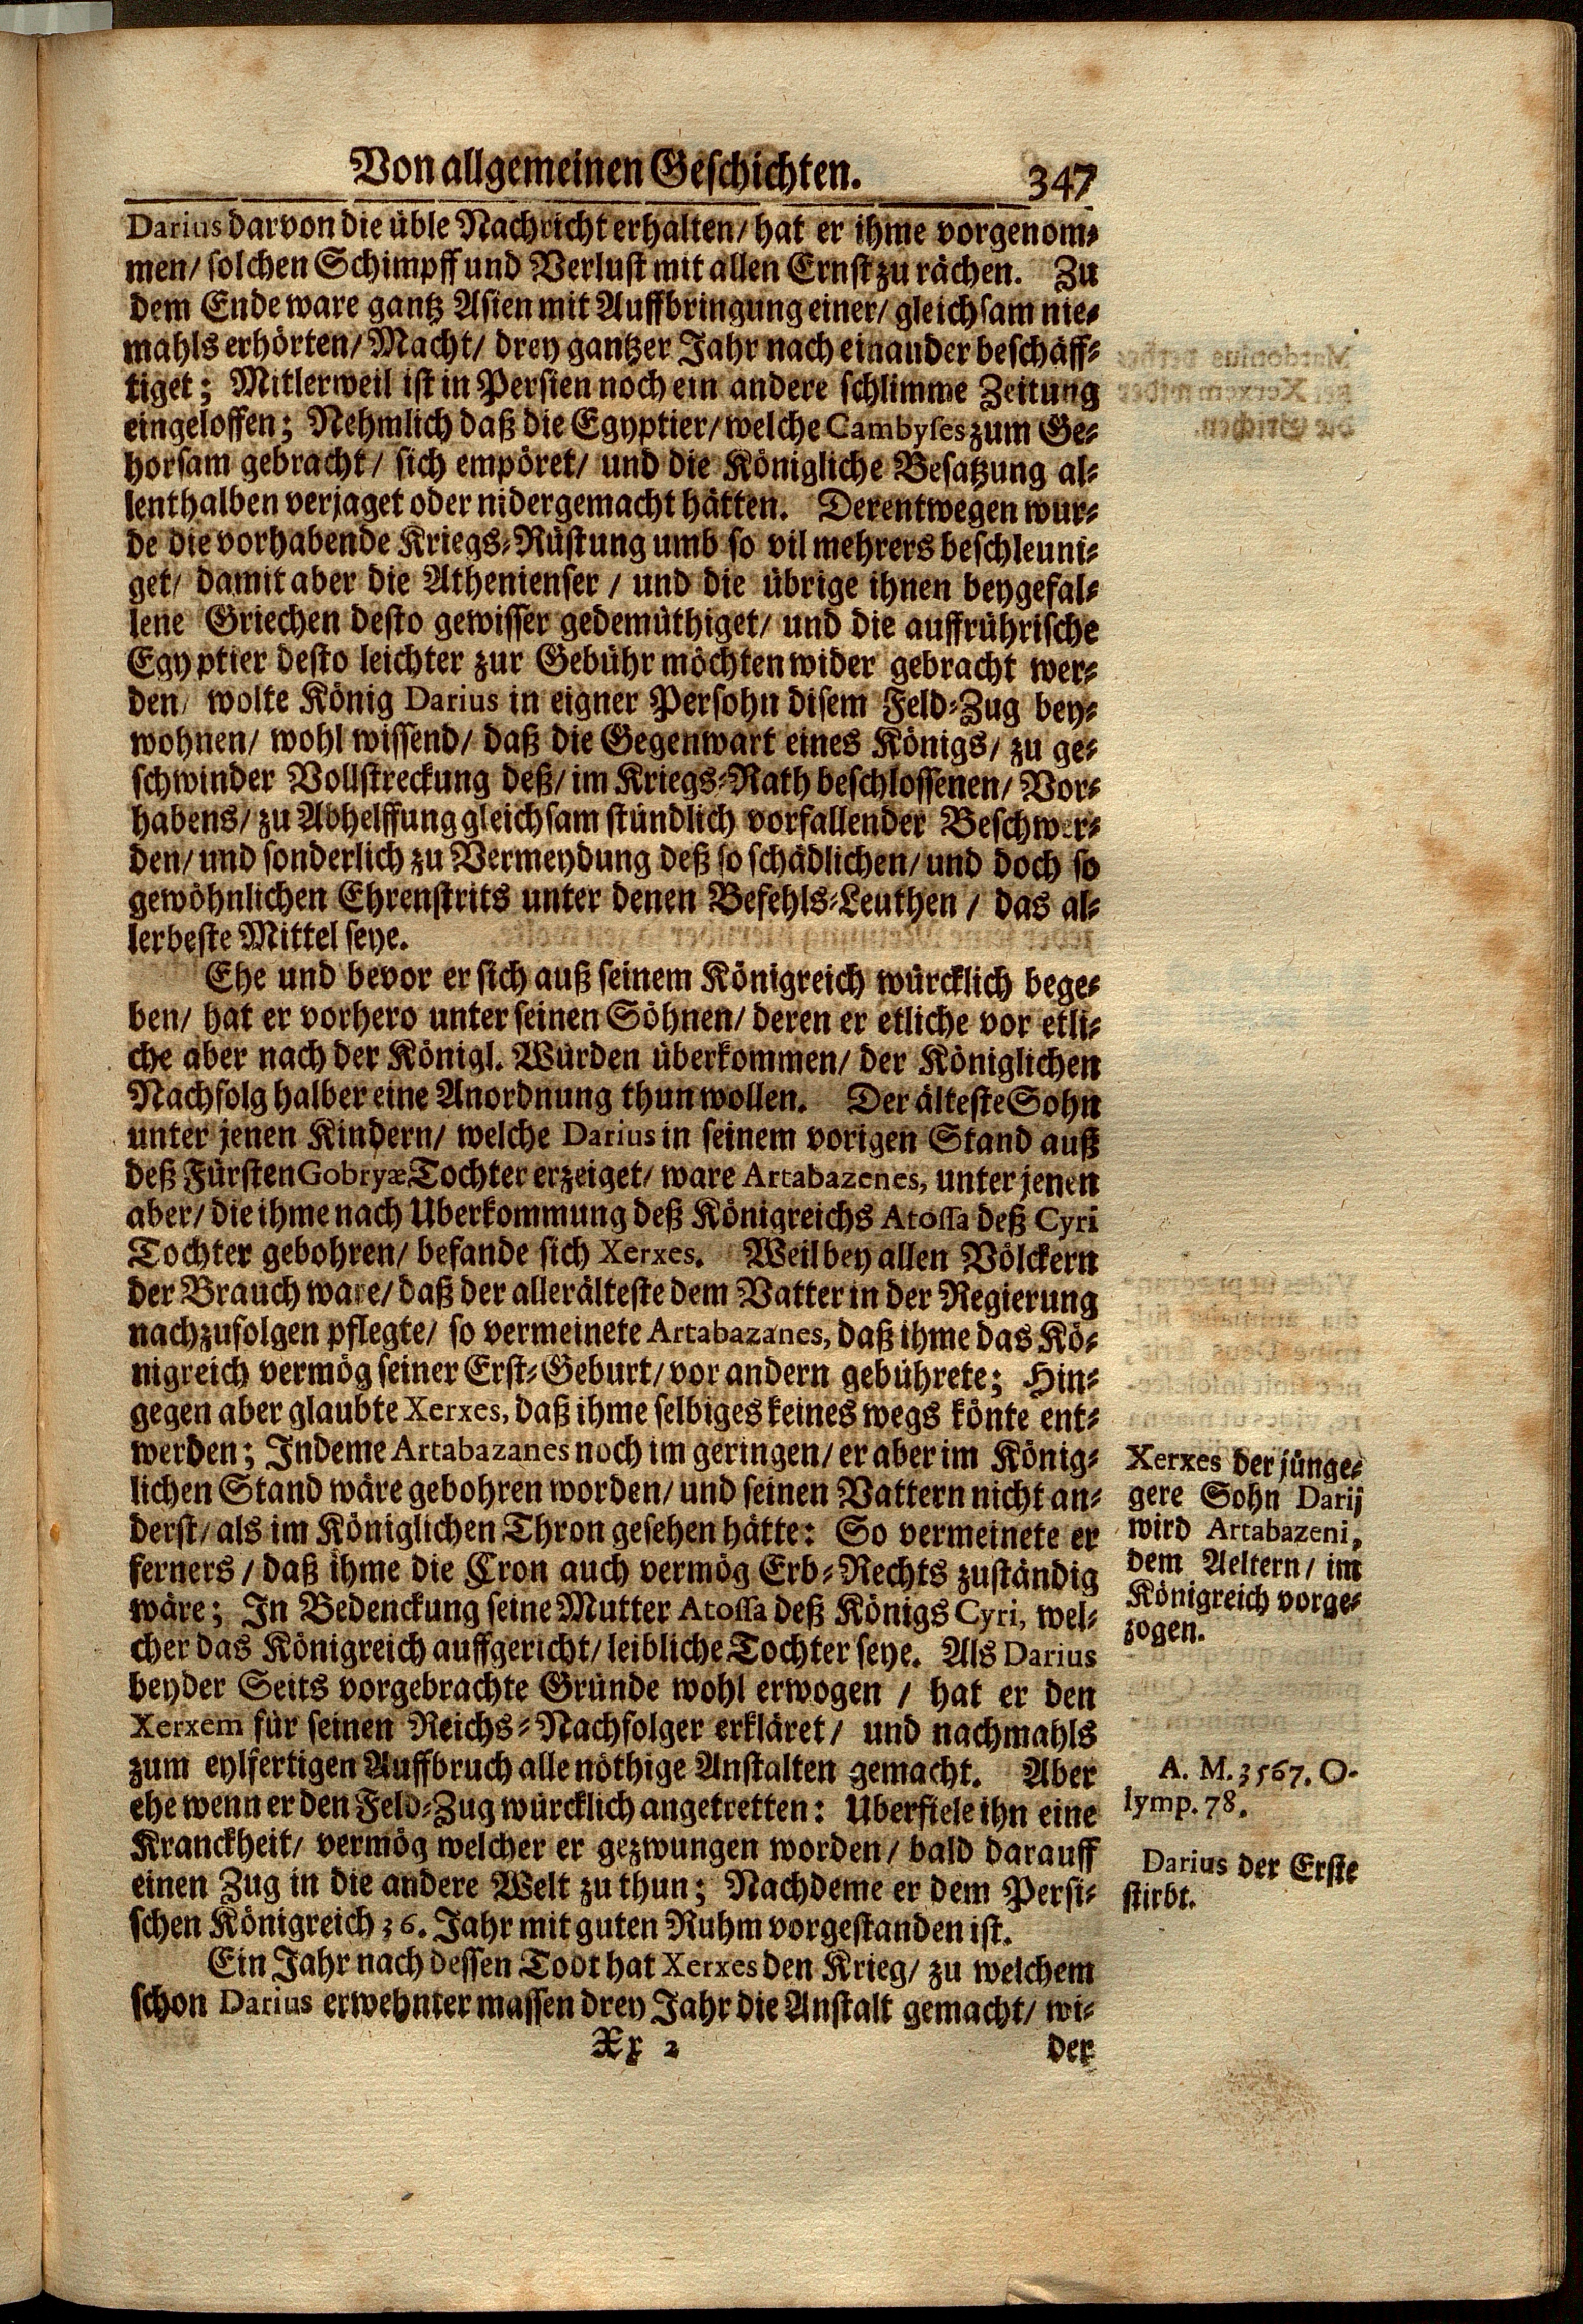 Von allgemeinen Geschichten. 347
Darius darvon die üble Nachricht erhalten/ hat er ihme vorgenom-
men/ solchen Schimpff und Verlust mit allen Ernst zu rächen. Zu
dem Ende ware gantz Asien mit Auffbringung einer/ gleichsam nie-
mahls erhörten/ Macht/ drey gantzer Jahr nach einander beschäff-
tiget; Mitlerweil ist in Persien noch ein andere schlimme Zeitung
eingeloffen; Nehmlich daß die Egyptier/ welche Cambyses zum Ge-
horsam gebracht/ sich empöret/ und die Königliche Besatzung al-
lenthalben verjaget oder nidergemacht hätten. Derentwegen wur-
de die vorhabende Kriegs-Rüstung umb so vil mehrers beschleuni-
get/ damit aber die Athenienser / und die übrige ihnen beygefal-
lene Griechen desto gewisser gedemüthiget/ und die auffrührische
Egyptier desto leichter zur Gebühr möchten wider gebracht wer-
den/ wolte König Darius in eigner Persohn disem Feld-Zug bey-
wohnen/ wohl wissend/ daß die Gegenwart eines Königs/ zu ge-
schwinder Vollstreckung deß/ im Kriegs-Rath beschlossenen/ Vor-
habens/ zu Abhelffung gleichsam stündlich vorfallender Beschwer-
den/ und sonderlich zu Vermeydung deß so schädlichen/ und doch so
gewöhnlichen Ehrenstrits unter denen Befehls-Leuthen / das al-
lerbeste Mittel seye.
Ehe und bevor er sich auß seinem Königreich würcklich bege-
ben/ hat er vorhero unter seinen Söhnen/ deren er etliche vor etli-
che aber nach der Königl. Würden überkommen/ der Königlichen
Nachfolg halber eine Anordnung thun wollen. Der älteste Sohn
unter jenen Kindern/ welche Darius in seinem vorigen Stand auß
deß Fürsten Gobryæ Tochter erzeiget/ ware Artabazenes, unter jenen
aber/ die ihme nach Uberkommung deß Königreichs Atossa deß Cyri
Tochter gebohren/ befande sich Xerxes. Weil bey allen Völckern
der Brauch ware/ daß der allerälteste dem Vatter in der Regierung
nachzufolgen pflegte/ so vermeinete Artabazanes, daß ihme das Kö-
nigreich vermög seiner Erst-Geburt/ vor andern gebührete; Hin-
gegen aber glaubte Xerxes, daß ihme selbiges keines wegs könte ent-
werden; Indeme Artabazanes noch im geringen/ er aber im König-
lichen Stand wäre gebohren worden/ und seinen Vattern nicht an-
derst/ als im Königlichen Thron gesehen hätte: So vermeinete er
ferners / daß ihme die Cron auch vermög Erb-Rechts zuständig
wäre; In Bedenckung seine Mutter Atossa deß Königs Cyri, wel-
cher das Königreich auffgericht/ leibliche Tochter seye. Als Darius
beyder Seits vorgebrachte Gründe wohl erwogen / hat er den
Xerxem für seinen Reichs-Nachfolger erkläret/ und nachmahls
zum eylfertigen Auffbruch alle nöthige Anstalten gemacht. Aber
ehe wenn er den Feld-Zug würcklich angetretten: Uberfiele ihn eine
Kranckheit/ vermög welcher er gezwungen worden/ bald darauff
einen Zug in die andere Welt zu thun; Nachdeme er dem Persi-
schen Königreich 36. Jahr mit guten Ruhm vorgestanden ist.
Ein Jahr nach dessen Todt hat Xerxes den Krieg/ zu welchem
schon Darius erwehnter massen drey Jahr die Anstalt gemacht/ wi-
Xx 2 der
Xerxes der jünge-
gere Sohn Darij
wird Artabazeni,
dem Aeltern/ im
Königreich vorge-
zogen.
A. M. 3567. O-
lymp. 78.
Darius der Erste
stirbt.